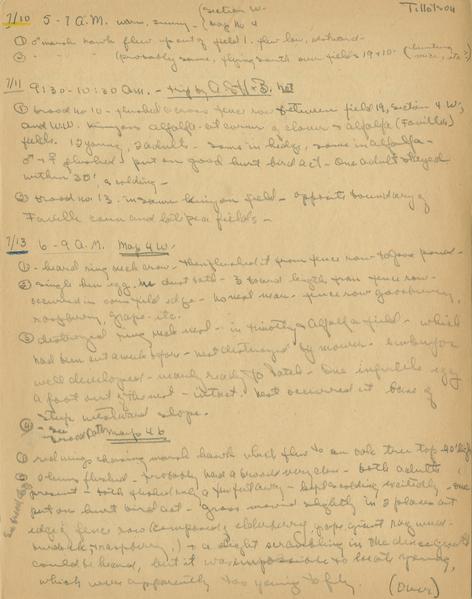 Tillotson
7/10 5-7 A.M. warm, sunny - (Section W. Map No 4
① ♂ marsh hawk flew west of field 1. flew low, westward.
② " " (probably same, flying south over fields 19 & 10. (hunting mice, etc.?)
7/11 9:30-10:30 A.M. -
① brood no 10 - flushed across fence row between field 19, section 4 W,
and Wm. alfalfa at corner of clover & alfalfa (Faville)
fields. 12 young, 2 adults - some in hedge, some in alfalfa -
♂ + ♀ flushed, put on good hurt bird act - One adult stayed
within 30', scolding -
② brood no. 13. in same field - opposite boundary of
Faville corn and fields -
7/13 6-9 A.M. Map 4 W.
① - heard ring neck crow - then flushed it from fence row
② single hen egg in dust bath - 3 length from fence row -
occurred in corn field edge - no nest near - fence row gooseberry,
raspberry, grape etc.
③ destroyed ring neck nest - in timothy & alfalfa field - which
had been cut a week before - nest destroyed by mower. embryos
well developed - nearly ready to hatch - One infertile egg
a foot out of the nest - intact. nest occurred at base of
steep westward slope.
④ - see Brood Data map 4b
① red wings chasing marsh hawk which flew to an oak tree top 40' high
② hens flushed - probably had a brood very close - both adults
present - both flushed only a few feet away - kept scolding excitedly - one
put on hurt bird act - Grass moved slightly in 2 places at
edge of fence row (composed of elderberry, giant rag weed -
raspberry,) & a slight scrambling in the
could be heard, but it was impossible to locate young,
which were apparently too young to fly. (Over)